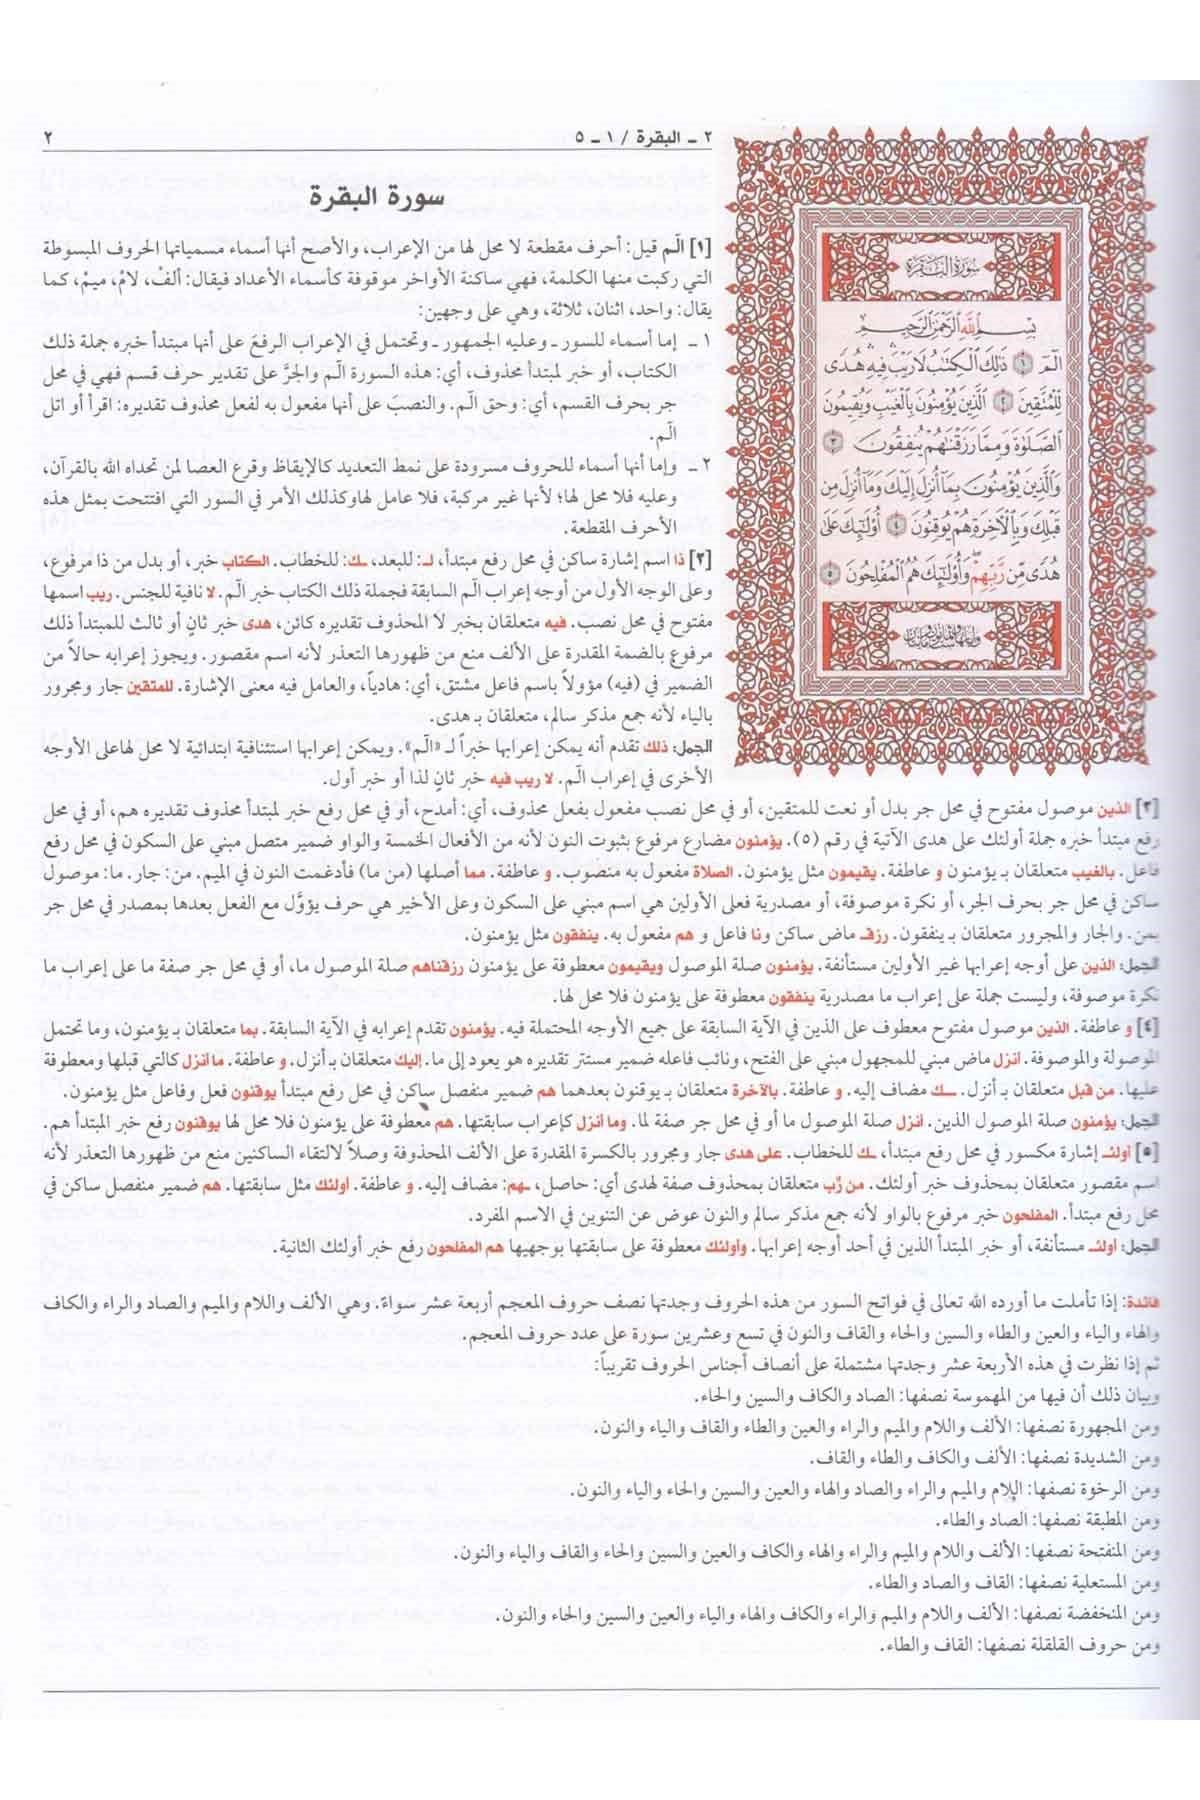 ٢ ـ البقرة / ١ ـ ٥
٢
سورة البقرة
بسم الله الرحمن الرحيم
الٓمٓ ١ ذَٰلِكَ ٱلْكِتَٰبُ لَا رَيْبَ فِيهِ هُدًى
لِّلْمُتَّقِينَ ٢ ٱلَّذِينَ يُؤْمِنُونَ بِٱلْغَيْبِ وَيُقِيمُونَ
ٱلصَّلَوٰةَ وَمِمَّا رَزَقْنَٰهُمْ يُنفِقُونَ ٣
وَٱلَّذِينَ يُؤْمِنُونَ بِمَآ أُنزِلَ إِلَيْكَ وَمَآ أُنزِلَ مِن
قَبْلِكَ وَبِٱلْأَخِرَةِ هُمْ يُوقِنُونَ ٤ أُو۟لَٰٓئِكَ عَلَىٰ
هُدًى مِّن رَّبِّهِمْ وَأُو۟لَٰٓئِكَ هُمُ ٱلْمُفْلِحُونَ ٥
سورة البقرة
[١] الٓم قيل: أحرف مقطعة لا محل لها من الإعراب، والأصح أنها أسماء مسمياتها الحروف المبسوطة
التي ركبت منها الكلمة، فهي ساكنة الأواخر موقوفة كأسماء الأعداد فيقال: ألفْ، لامْ، ميمْ، كما
يقال: واحد، اثنان، ثلاثة، وهي على وجهين:
١ ـ إما أسماء للسور ـ وعليه الجمهور ـ وتحتمل في الإعراب الرفعَ على أنها مبتدأ خبره جملة ذلك
الكتاب، أو خبر لمبتدأ محذوف، أي: هذه السورة الٓم والجرَّ على تقدير حرف قسم فهي في محل
جر بحرف القسم، أي: وحق الٓم. والنصبَ على أنها مفعول به لفعل محذوف تقديره: اقرأ أو اتل
الٓم.
٢ ـ وإما أنها أسماء للحروف مسرودة على نمط التعديد كالإيقاظ وقرع العصا لمن تحداه الله بالقرآن،
وعليه فلا محل لها؛ لأنها غير مركبة، فلا عامل لها وكذلك الأمر في السور التي افتتحت بمثل هذه
الأحرف المقطعة.
[٢] ذا اسم إشارة ساكن في محل رفع مبتدأ، لـ: للبعد، ـك: للخطاب. الكتاب خبر، أو بدل من ذا مرفوع،
وعلى الوجه الأول من أوجه إعراب الٓم السابقة فجملة ذلك الكتاب خبر الٓم. لا نافية للجنس. ريب اسمها
مفتوح في محل نصب. فيه متعلقان بخبر لا المحذوف تقديره كائن، هدى خبر ثانٍ أو ثالث للمبتدأ ذلك
مرفوع بالضمة المقدرة على الألف منع من ظهورها التعذر لأنه اسم مقصور. ويجوز إعرابه حالاً من
الضمير في (فيه) مؤولاً باسم فاعل مشتق، أي: هادياً، والعامل فيه معنى الإشارة. للمتقين جار ومجرور
بالياء لأنه جمع مذكر سالم، متعلقان بـ هدى.
الجمل: ذلك تقدم أنه يمكن إعرابها خبراً لـ «الٓم». ويمكن إعرابها استئنافية ابتدائية لا محل لها على الأوجه
الأخرى في إعراب الٓم. لا ريب فيه خبر ثانٍ لذا أو خبر أول.
[٣] الذين موصول مفتوح في محل جر بدل أو نعت للمتقين، أو في محل نصب مفعول بفعل محذوف، أي: أمدح، أو في محل رفع خبر لمبتدأ محذوف تقديره هم، أو في محل
رفع مبتدأ خبره جملة أولئك على هدى الآتية في رقم (٥). يؤمنون مضارع مرفوع بثبوت النون لأنه من الأفعال الخمسة والواو ضمير متصل مبني على السكون في محل رفع
فاعل. بالغيب متعلقان بـ يؤمنون و عاطفة. يقيمون مثل يؤمنون. الصلاة مفعول به منصوب. و عاطفة. مما أصلها (من ما) فأدغمت النون في الميم. من: جار. ما: موصول
ساكن في محل جر بحرف الجر، أو نكرة موصوفة، أو مصدرية فعلى الأولين هي اسم مبني على السكون وعلى الأخير هي حرف يؤوَّل مع الفعل بعدها بمصدر في محل جر
بمن. والجار والمجرور متعلقان بـ ينفقون. رزقـ ماض ساكن ونا فاعل و هم مفعول به. ينفقون مثل يؤمنون.
الجمل: الذين على أوجه إعرابها غير الأولين مستأنفة. يؤمنون صلة الموصول ويقيمون معطوفة على يؤمنون رزقناهم صلة الموصول ما، أو في محل جر صفة ما على إعراب ما
نكرة موصوفة، وليست جملة على إعراب ما مصدرية ينفقون معطوفة على يؤمنون فلا محل لها.
[٤] و عاطفة. الذين موصول مفتوح معطوف على الذين في الآية السابقة على جميع الأوجه المحتملة فيه. يؤمنون تقدم إعرابه في الآية السابقة. بما متعلقان بـ يؤمنون، وما تحتمل
الموصولة والموصوفة. أنزل ماض مبني للمجهول مبني على الفتح، ونائب فاعله ضمير مستتر تقديره هو يعود إلى ما. إليك متعلقان بـ أنزل. و عاطفة. ما أنزل كالتي قبلها ومعطوفة
عليها. من قبل متعلقان بـ أنزل. ـك مضاف إليه. و عاطفة. بالآخرة متعلقان بـ يوقنون بعدهما هم ضمير منفصل ساكن في محل رفع مبتدأ يوقنون فعل وفاعل مثل يؤمنون.
الجمل: يؤمنون صلة الموصول الذين. أنزل صلة الموصول ما أو في محل جر صفة لما. وما أنزل كإعراب سابقتها. هم معطوفة على يؤمنون فلا محل لها يوقنون رفع خبر المبتدأ هم.
[٥] أولئـ إشارة مكسور في محل رفع مبتدأ، ـك للخطاب. على هدى جار ومجرور بالكسرة المقدرة على الألف المحذوفة وصلاً لالتقاء الساكنين منع من ظهورها التعذر لأنه
اسم مقصور متعلقان بمحذوف خبر أولئك. من رَّب متعلقان بمحذوف صفة لهدى أي: حاصل، ـهم: مضاف إليه. و عاطفة. أولئك مثل سابقتها. هم ضمير منفصل ساكن في
محل رفع مبتدأ. المفلحون خبر مرفوع بالواو لأنه جمع مذكر سالم والنون عوض عن التنوين في الاسم المفرد.
الجمل: أولئـ مستأنفة، أو خبر المبتدأ الذين في أحد أوجه إعرابها. وأولئك معطوفة على سابقتها بوجهيها هم المفلحون رفع خبر أولئك الثانية.
فائدة: إذا تأملت ما أورده الله تعالى في فواتح السور من هذه الحروف وجدتها نصف حروف المعجم أربعة عشر سواءً. وهي الألف واللام والميم والصاد والراء والكاف
والهاء والياء والعين والطاء والسين والحاء والقاف والنون في تسع وعشرين سورة على عدد حروف المعجم.
ثم إذا نظرت في هذه الأربعة عشر وجدتها مشتملة على أنصاف أجناس الحروف تقريباً:
وبيان ذلك أن فيها من المهموسة نصفها: الصاد والكاف والسين والحاء.
ومن المجهورة نصفها: الألف واللام والميم والراء والعين والطاء والقاف والياء والنون.
ومن الشديدة نصفها: الألف والكاف والطاء والقاف.
ومن الرخوة نصفها: اللام والميم والراء والصاد والهاء والعين والسين والحاء والياء والنون.
ومن المطبقة نصفها: الصاد والطاء.
ومن المنفتحة نصفها: الألف واللام والميم والراء والهاء والكاف والعين والسين والحاء والقاف والياء والنون.
ومن المستعلية نصفها: القاف والصاد والطاء.
ومن المنخفضة نصفها: الألف واللام والميم والراء والكاف والهاء والياء والعين والسين والحاء والنون.
ومن حروف القلقلة نصفها: القاف والطاء.